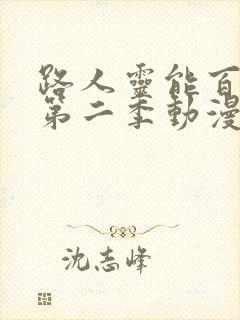 路人靈能百
第二季動漫
沈志峰